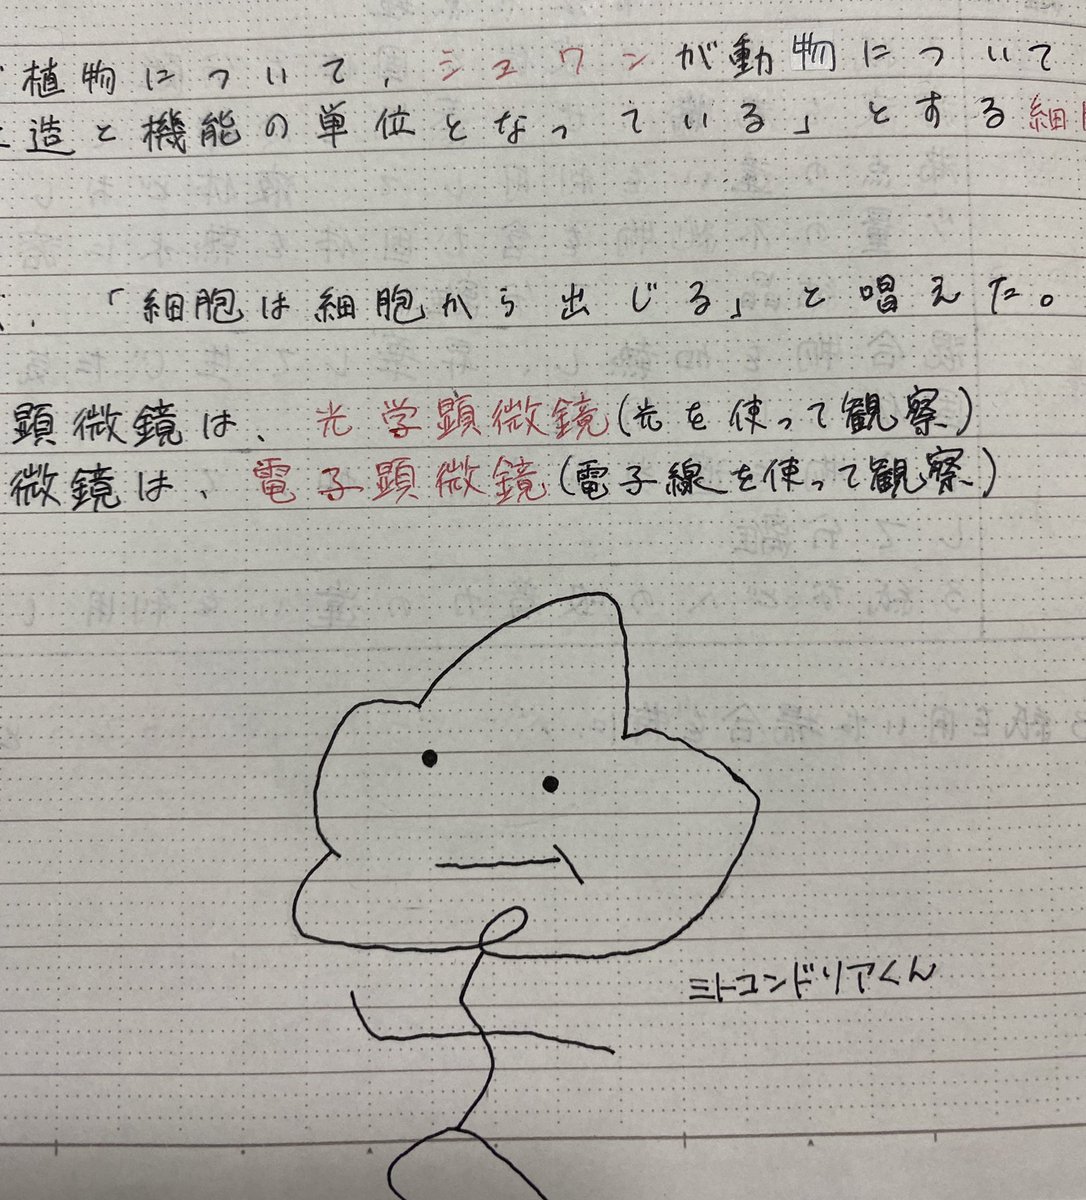 植物について、シュワンが動物について
造と機能の単位となっている」とする細
「細胞は細胞から出じる」と唱えた。
顕微鏡は、光学顕微鏡(光を使って観察)
微鏡は、電子顕微鏡(電子線を使って観察)
ミトコンドリアくん